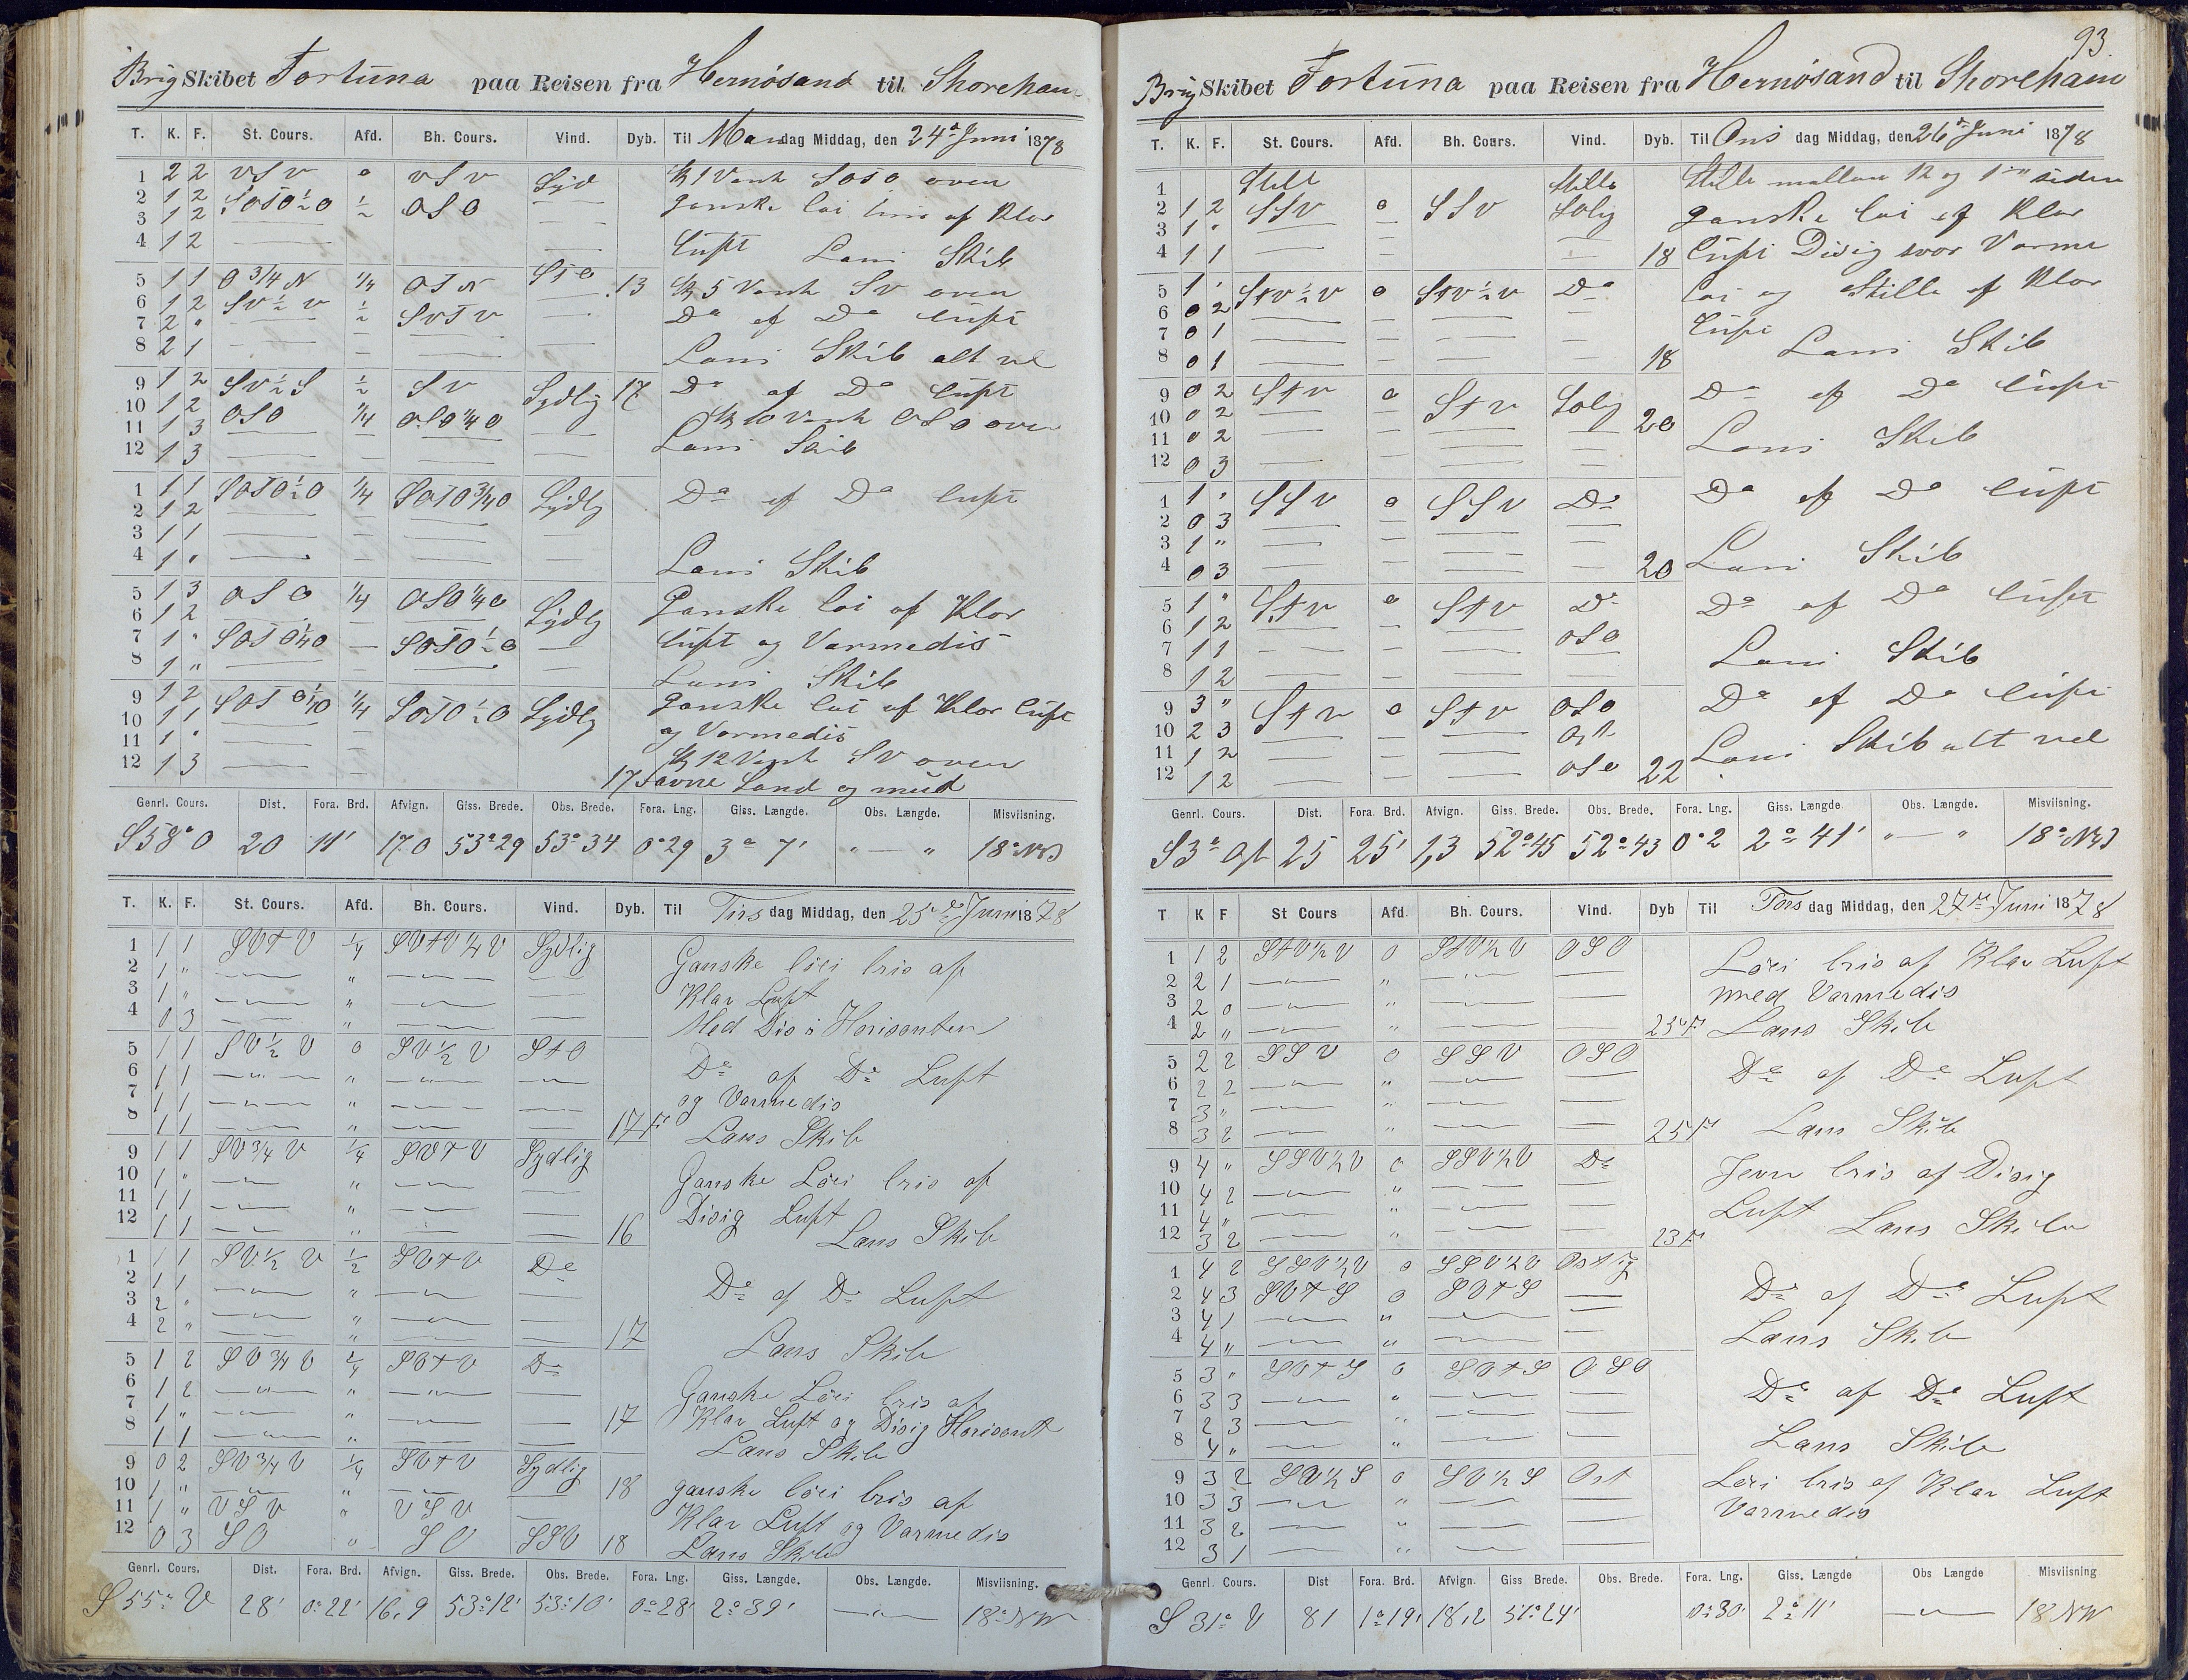 Brig Skibet Fortuna paa Reisen fra Hernösand til Shoreham
T. K. F. St. Cours. Afd. Bh. Cours. Vind. Dyb. Til Mandag Middag, den 24de Juni 1878
1 2 2 VSV 0 VSV Syd Kl 1 Vendt SOTO over
2 1 2 SOTO½O ½ OSO — ganske löi bris af Klar
3 1 2
4 1 2 — — Luft Lens Skib
5 1 1 O¾N ¼ OTN STO 13 Kl 5 Vendt SV over
6 1 2 SV½V ½ SVTV — Do af Do Luft
7 2 "
8 2 1 — — — — Lens Skib alt vel
9 1 2 SV½S ½ SV Sydlig 17 Do af Do Luft
10 1 2 OSO ¼ OSO¼O — Kl 10 Vendt OSO over
11 1 3 — — — — Lens Skib
12 1 3 — — — —
1 1 1 SOTO½O ¼ SOTO¾O Sydlg Do af Do Luft
2 1 2 — — — —
3 1 1 — — — —
4 1 " — — — — Lens Skib
5 1 3 OSO ¼ OSO¼O Sydlg Ganske löi af Klar
6 1 2
7 1 " SOTO¼O — SOTO½O — Luft og Varmedis
8 1 " — — — — Lens Skib
9 1 2 SOTO¼O ¼ SOTO½O Sydlg Ganske löi af Klar Luft
10 1 1 — — og Varmedis
11 1 " — — Kl 12 Vendt SV over
12 1 3 — — 17 Favne Sand og mud
Genrl. Cours. Dist. Fora. Brd. Afvign. Giss. Brede. Obs. Brede. Fora. Lng. Giss. Længde. Obs. Længde. Misviisning.
S58°O 20 11' 17.0 53°29 53°34 0°29 3° 7' " — " 18° NW
T. K. F. St. Cours. Afd. Bh. Cours. Vind. Dyb. Til Tirsdag Middag, den 25de Juni 1878
1 1 1 SVTV ¼ SVTV¼V Sydlig Ganske löei bris af
2 1 " — " — — Klar Luft
3 1 " — " — —
4 0 3 — " — — Med Dis i Horisonten
5 1 1 SV½V 0 SV½V STO Do af Do Luft
6 1 1 — " — —
7 1 1 — " — — og Varmedis
8 1 1 — " — — 17 Fv Lens Skib
9 1 1 SV¾V ¼ SVTV Sydlig Ganske Löei bris af
10 1 " — " — —
11 1 1 — " — — Disig Luft
12 1 1 — " — — 16 Lens Skib
1 1 1 SV½V ½ SVTV Do Do af Do Luft
2 1 1 — " — —
3 2 " — " — —
4 2 " — " — — 17 Lens Skib
5 1 2 SV¾V ¼ SVTV Do Ganske Löei bris af
6 1 2 — " — —
7 1 " — " — — 17 Klar Luft og Disig Horisont
8 1 1 — " — — Lens Skib
9 0 2 SV¾V ¼ SVTV Sydlig 18 ganske löei bris af
10 1 " — " — —
11 1 " VSV " VSV — Klar Luft og Varmedis
12 0 3 SO " SO SSO 18 Lens Skib
Genrl. Cours. Dist. Fora. Brd. Afvign. Giss. Brede. Obs. Brede. Fora. Lng. Giss. Længde. Obs. Længde. Misviisning.
S 55° V 28' 0°22' 16,9 53°12' 53°10' 0°28' 2°39' — " — 18° NW
93.
Brig Skibet Fortuna paa Reisen fra Hernösand til Shoreham
T. K. F. St. Cours. Afd. Bh. Cours. Vind. Dyb. Til Onsdag Middag, den 26de Juni 1878
1 Stille Stille Stille mellem 12 og 1 siden
2 1 2 SSV 0 SSV ganske löi af Klar
3 1 " — — —
4 1 1 — — — — 18 Luft Disig svor Varme
5 1 ' STV½V 0 STV½V Do löi og Stille af Klar
6 0 2 — — — — Luft
7 0 1 — — — —
8 0 1 — — — — 18 Lens Skib
9 0 2 STV 0 STV Do af Do Luft
10 0 2 — — — — 20
11 0 2 — — — — Lens Skib
12 0 3 — — — —
1 1 ' SSV 0 SSV Do Do af Do Luft
2 0 3 — — — —
3 1 " — — — —
4 0 3 — — — — 20 Lens Skib
5 1 " STV 0 STV Do Do af Do Luft
6 1 2 — — — OSO
7 1 1 — — — —
8 1 2 — — — Lens Skib
9 3 " STV 0 STV OSO Do af Do Luft
10 2 3 — — — Ost
11 1 2 — — — Lens Skib alt vel
12 1 2 — — — OSO 22
Genrl. Cours. Dist. Fora. Brd. Afvign. Giss. Brede. Obs. Brede. Fora. Lng. Giss. Længde. Obs. Længde. Misviisning.
S3° Ost 25 25' 1,3 52°45 52°43 0°2 2°41' " — " 18° NW
T K F St Cours Afd. Bh. Cours. Vind. Dyb Til Torsdag Middag, den 27de Juni 1878
1 1 2 STV½V 0 STV½V OSO Löei bris af Klar Luft
2 2 1 — " — —
3 2 0 — " — — med Varmedis
4 2 " — " — — 23 Fv Lens Skib
5 2 2 SSV 0 SSV OSO Do af Do Luft
6 2 2 — " — —
7 3 " — " — —
8 3 2 — " — — 25 Fv Lens Skib
9 4 " SSV½V 0 SSV½V Do Jevn bris af Disig
10 4 2 — " — —
11 4 " — " — — Luft
12 3 2 — " — — 23 Fv Lens Skib
1 4 2 SSV½V 0 SSV½V Ostlig
2 4 3 SVTS 0 SVTS — Do af Do Luft
3 4 1 — " — —
4 4 " — " — — Lens Skib
5 3 " SVTS 0 SVTS OSO
6 3 3 — " — — Do af Do Luft
7 2 3 — " — —
8 4 " — " — — Lens Skib
9 3 2 SV½S 0 SV½S Ost Löei bris af Klar Luft
10 3 3 — " — — Varmedis
11 3 2 — " — —
12 3 1 — " — —
Genrl. Cours. Dist Fora. Brd. Afvign. Giss Brede. Obs. Brede. Fora. Lng. Giss. Længde Obs Længde Misviisning
S 31° V 81 1°19' 18,2 51°24' 0°30' 2°11' — " — 18 NW